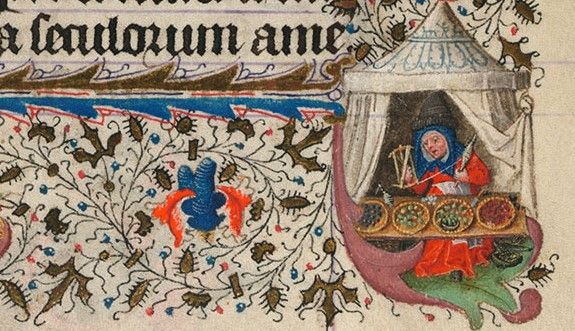 a seculorum ame